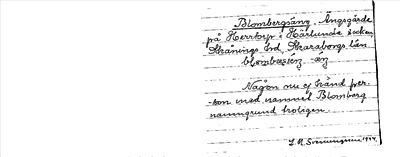 Blombergsäng. Ängsgärde
på Herrtorp i Härlunda socken
Skånings hd, Skaraborgs län
blombærsæŋ -æŋ
Någon nu ej känd per-
son med namnet Blomberg
namngrund troligen.
S. A. Svenningsson 1924